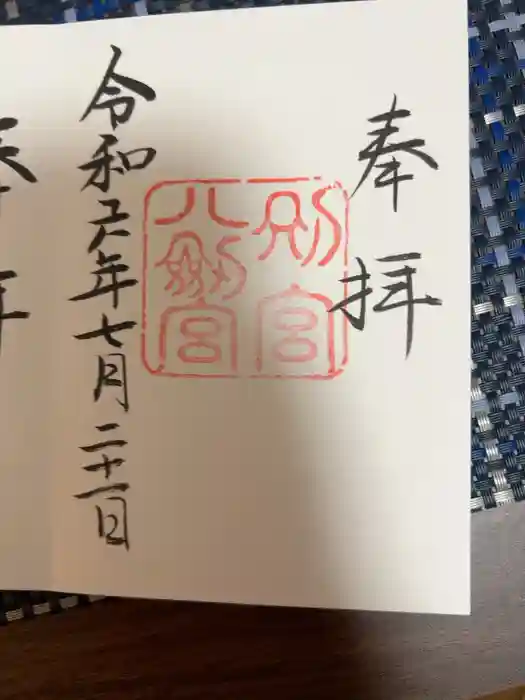 奉拝
別宮
八剣宮
令和六年七月二十一日